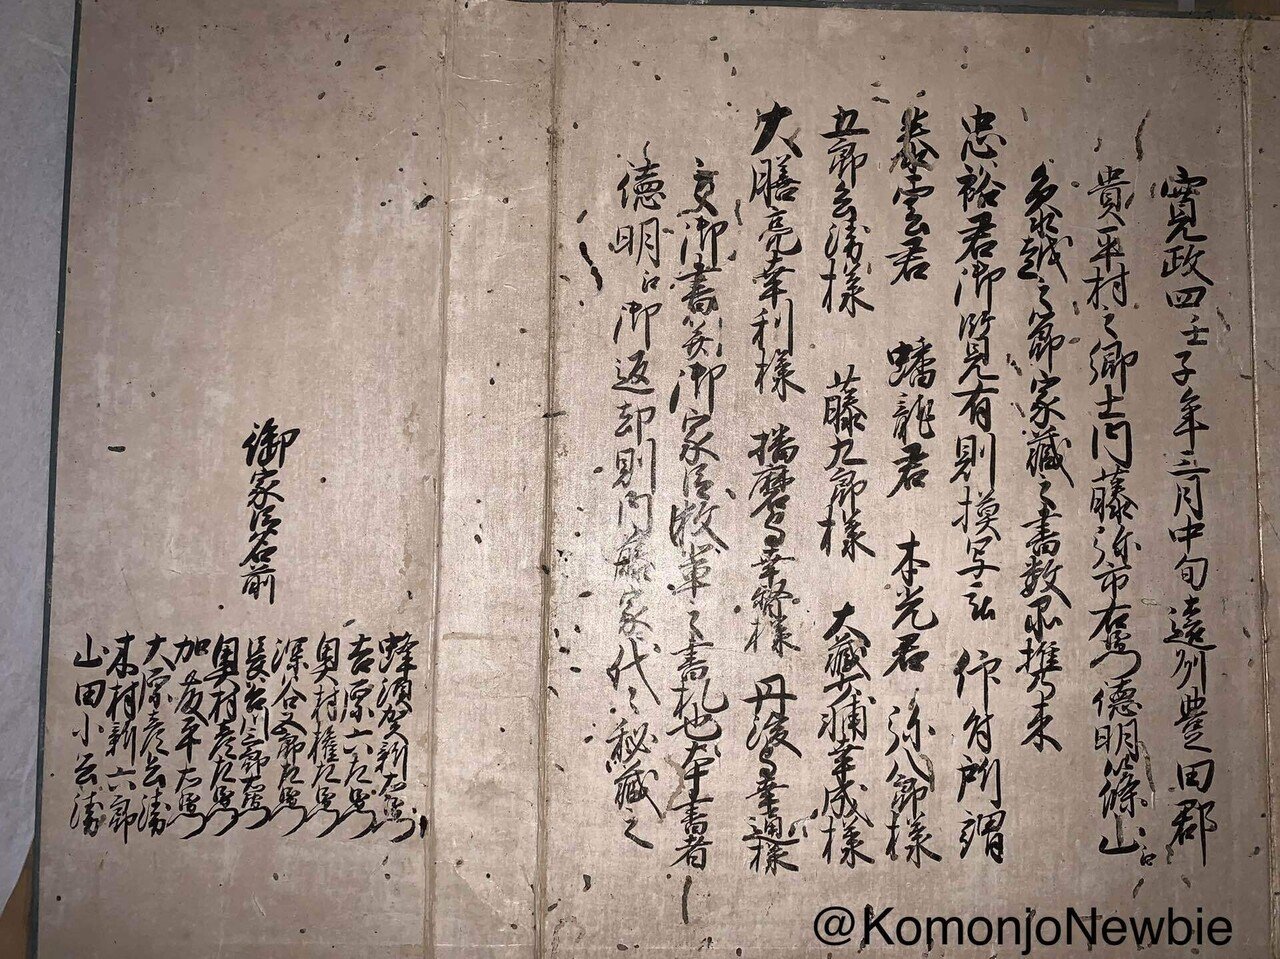 寛政四壬子年三月中旬遠州豊田郡
貴平村之郷士内藤弥市右衛門徳明篠山江
多越之節家蔵之書数品携来
忠裕君御覧有則模写被 仰付所謂
泰雲君 蟠龍君 本光君 弥八郎様
五郎兵衛様 藤九郎様 大蔵大輔幸成様
大膳亮幸利様 播磨守幸 様 丹後守幸通様
之御書翰御家臣数輩之書札也本書者
徳明江御返却則内藤家代々秘蔵之
御家臣名前
蜂須賀新左衛門
吉原六左衛門
奥村権左衛門
深谷又郎左衛門
長谷川三郎左衛門
奥村彦左衛門
加藤平右衛門
大原彦兵衛
木村新六郎
山田小兵衛
@KomonjoNewbie